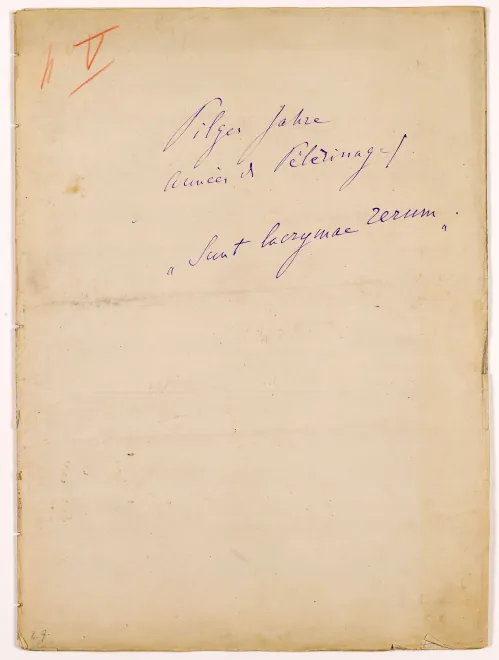 V
Pilger Jahre
Années de Pèlerinage/
„ Sunt lacrymae rerum „.